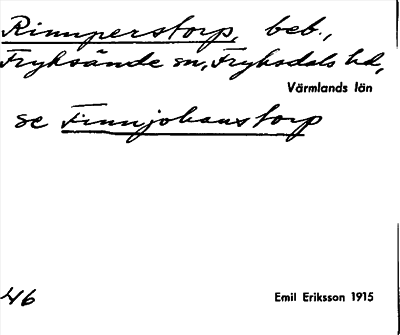 Rimperstorp, beb.,
Fryksände sn, Fryksdals hd,
Värmlands län
se Finnjohanstorp
46
Emil Eriksson 1915